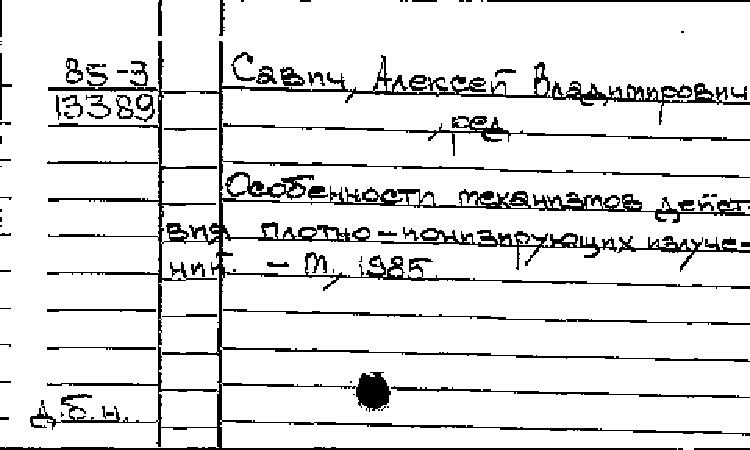 85-3
13389
Савич, Алексей Владимирович
, ред.
Особенности механизмов дейст-
вия плотно-ионизирующих излуче-
ний. - М., 1985.
д.б.н.